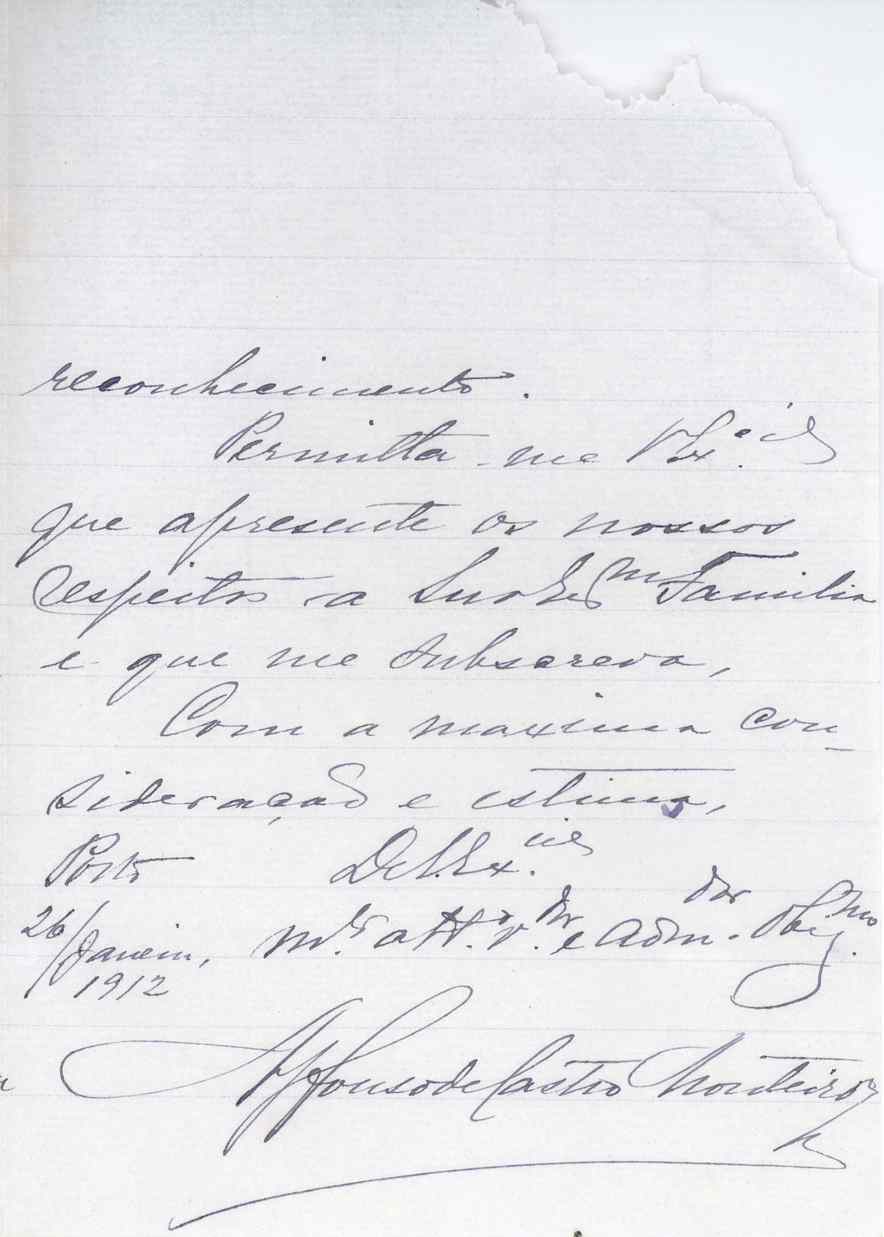 reconhecimento.
Permitta-me V. Ex.cia
que apresente os nossos
respeitos a Sua Ex.ma Familia
e que me subscreva,
Com a maxima con-
sideração e estima,
Porto De V. Ex.cia
26/Janeiro, m.to att.o v.dor e adm.dor obrig.mo
1912
Affonso de Castro Monteiro